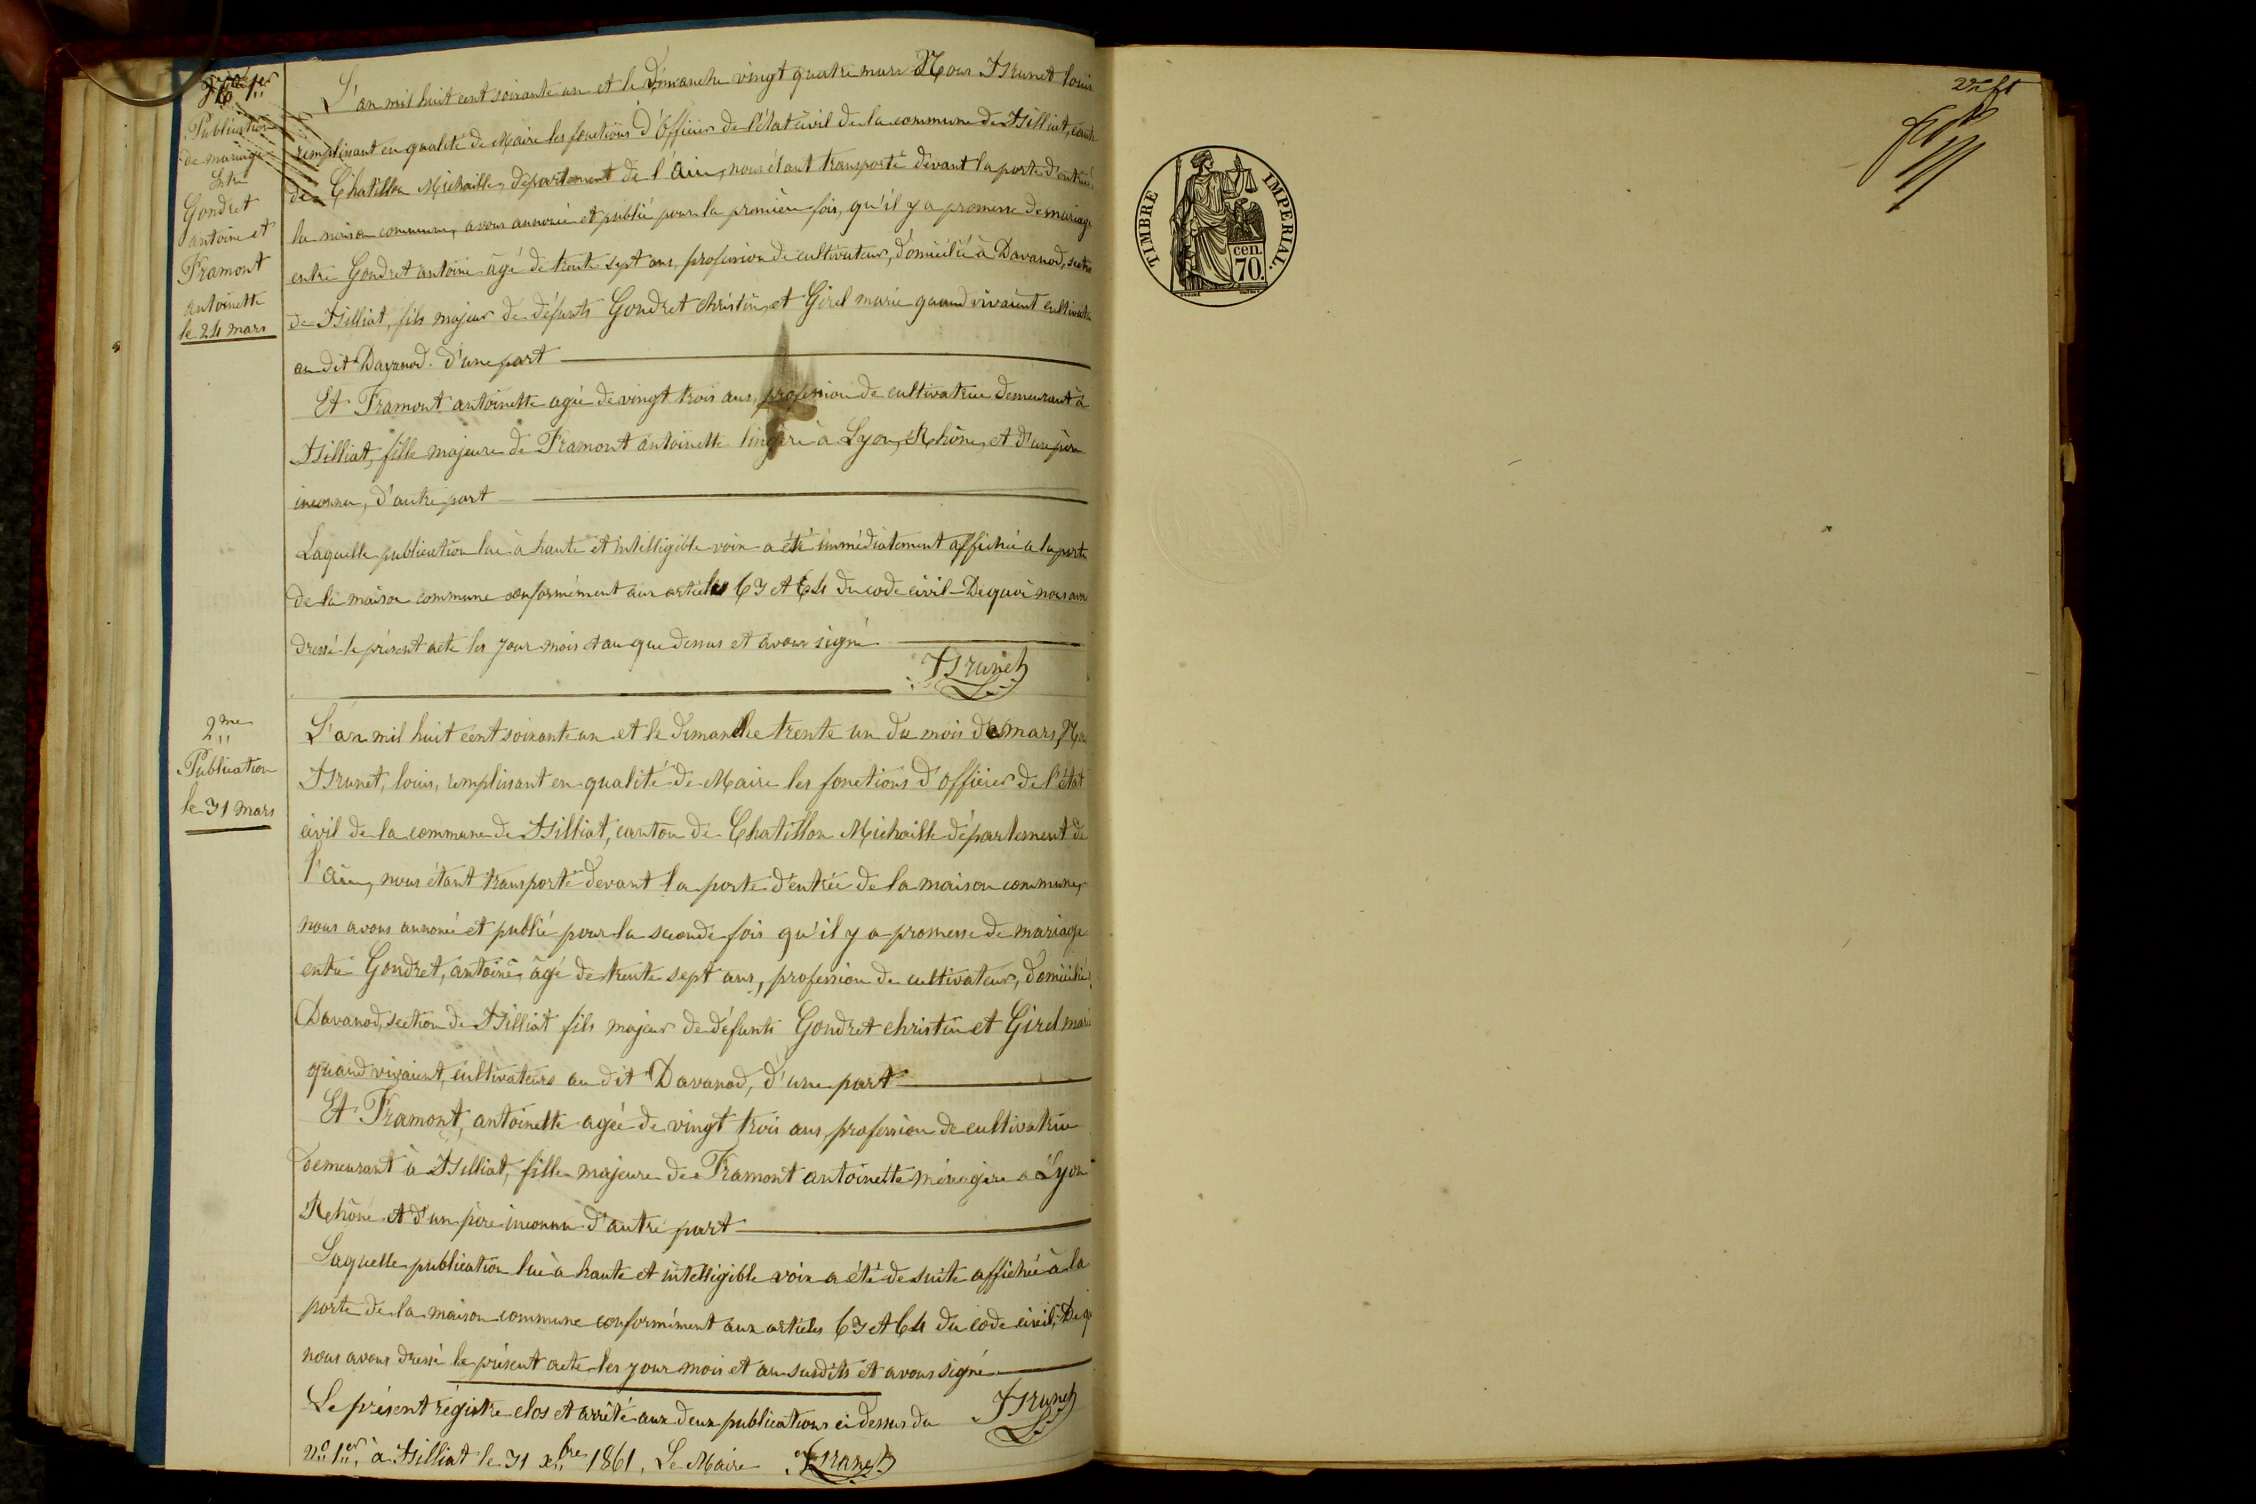 N° 1er
Publication
de mariage
Entre
Gondret
antoine et
Framont
antoinette
le 24 mars
L'an mil huit cent soixante un et le Dimanche vingt quatre mars Nous Brunet louis
remplissant en qualité de Maire les fonctions d'officier de l'état civil de la commune de Billiat, canton
de Chatillon Michaille, département de l'Ain, nous étant transporté devant la porte d'entrée
la maison commune, avons annoncé et publié pour la première fois, qu'il y a promesse de mariage
entre Gondret antoine âgé de trente sept ans, profession de cultivateur, domicilié à Davanod, section
de Billiat, fils majeur de défunts Gondret christin, et Girel marie quand vivaient cultivateurs
au dit Davanod. d'une part
Et Framont antoinette agée de vingt trois ans, profession de cultivatrice demeurant à
Billiat, fille majeure de Framont antoinette lingère à Lyon, Rhône, et d'un père
inconnu, d'autre part
Laquelle publication lue à haute et intelligible voix a été immédiatement affichée à la porte
de la maison commune conformément aux articles 63 et 64 du code civil - De quoi nous avons
dressé le présent acte les jour mois et an que dessus et avons signé
Brunet
2me
Publication
le 31 mars
L'an mil huit cent soixante un et le dimanche trente un du mois de mars, Nous
Brunet, louis, remplissant en qualité de Maire les fonctions d'officier de l'état
civil de la commune de Billiat, canton de Chatillon Michaille département de
l'Ain, nous étant transporté devant la porte d'entrée de la maison commune,
nous avons annoncé et publié pour la seconde fois qu'il y a promesse de mariage
entre Gondret, antoine, âgé de trente sept ans, profession de cultivateur, domicilié
Davanod, section de Billiat fils majeur de défunts Gondret christin et Girel marie
quand vivaient, cultivateurs au dit Davanod, d'une part
Et Framont, antoinette agée de vingt trois ans, profession de cultivatrice
demeurant à Billiat, fille majeure de Framont antoinette ménagère à Lyon
Rhône et d'un père inconnu d'autre part
Laquelle publication lue à haute et intelligible voix a été de suite affichée à la
porte de la maison commune conformément aux articles 63 et 64 du code civil, De quoi
nous avons dressé le présent acte les jour mois et an susdits et avons signé
Brunet
Le présent régistre clos et arrêté aux deux publications ci dessus du
n° 1er, à Billiat le 31 xbre 1861. Le Maire Brunet
22 ft
TIMBRE IMPERIAL.
cen.
70.